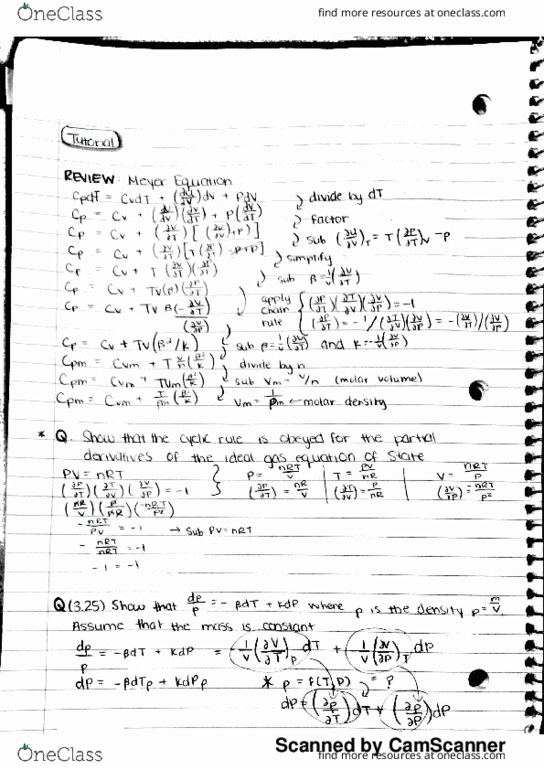 OneClass
find more resources at oneclass.com
Tutorial
REVIEW: Meyer Equation
CpdT = CvdT + (∂U/∂V)dV + PdV } divide by dT
Cp = Cv + (∂U/∂V)(∂V/∂T) + P(∂V/∂T) } factor
Cp = Cv + (∂V/∂T)[(∂U/∂V)+P)] } sub (∂U/∂V)T = T(∂P/∂T)V - P
Cp = Cv + (∂V/∂T)[T(∂P/∂T) - P+P] } simplify
Cp = Cv + T(∂V/∂T)(∂P/∂T) } sub β = 1/V(∂V/∂T)
Cp = Cv + TV(β)(∂P/∂T)
Cp = Cv + TV β(-∂V/∂T)/(∂V/∂P) } apply chain rule { (∂P/∂T)(∂T/∂V)(∂V/∂P) = -1
(∂P/∂T) = -1/(∂T/∂V)(∂V/∂P) = -(∂V/∂T)/(∂V/∂P)
Cp = Cv + TV(β²/k) } sub β = 1/V(∂V/∂T) and k = -1/V(∂V/∂P)
Cpm = Cvm + T V/n(β²/k) } divide by n
Cpm = Cvm + TVm(β²/k) } sub Vm = V/n (molar volume)
Cpm = Cvm + T/ρm(β²/k) } Vm = 1/ρm ← molar density
* Q. Show that the cyclic rule is obeyed for the partial
derivatives of the ideal gas equation of State
PV = nRT } P = nRT/V | T = PV/nR | V = nRT/P
(∂P/∂T)(∂T/∂V)(∂V/∂P) = -1 (∂P/∂T) = nR/V | (∂T/∂V) = P/nR | (∂V/∂P) = -nRT/P²
(nR/V)(P/nR)(-nRT/P²)
-nRT/PV = -1 → Sub PV = nRT
-nRT/nRT = -1
-1 = -1
Q (3.25) Show that dρ/ρ = -βdT + kdP where ρ is the density ρ = m/V.
Assume that the mass is constant
dρ/ρ = -βdT + kdP = -1/V(∂V/∂T)P dT + 1/V(∂V/∂P)T dP
dρ = -βdTρ + kdPρ * ρ = f(T,P) = ?
dρ = (∂ρ/∂T)dT + (∂ρ/∂P)dP
Scanned by CamScanner
OneClass
find more resources at oneclass.com